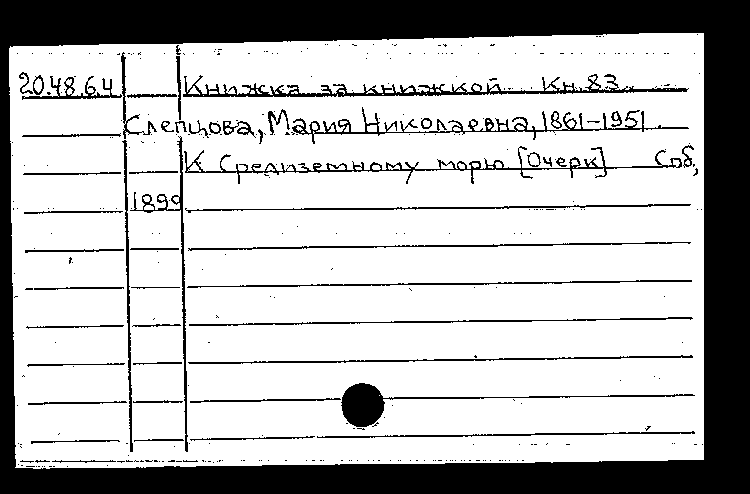 20.48.6.4 Книжка за книжкой Кн.83
Слепцова, Мария Николаевна, 1861-1951.
К Средиземному морю [Очерк] Спб,
1899